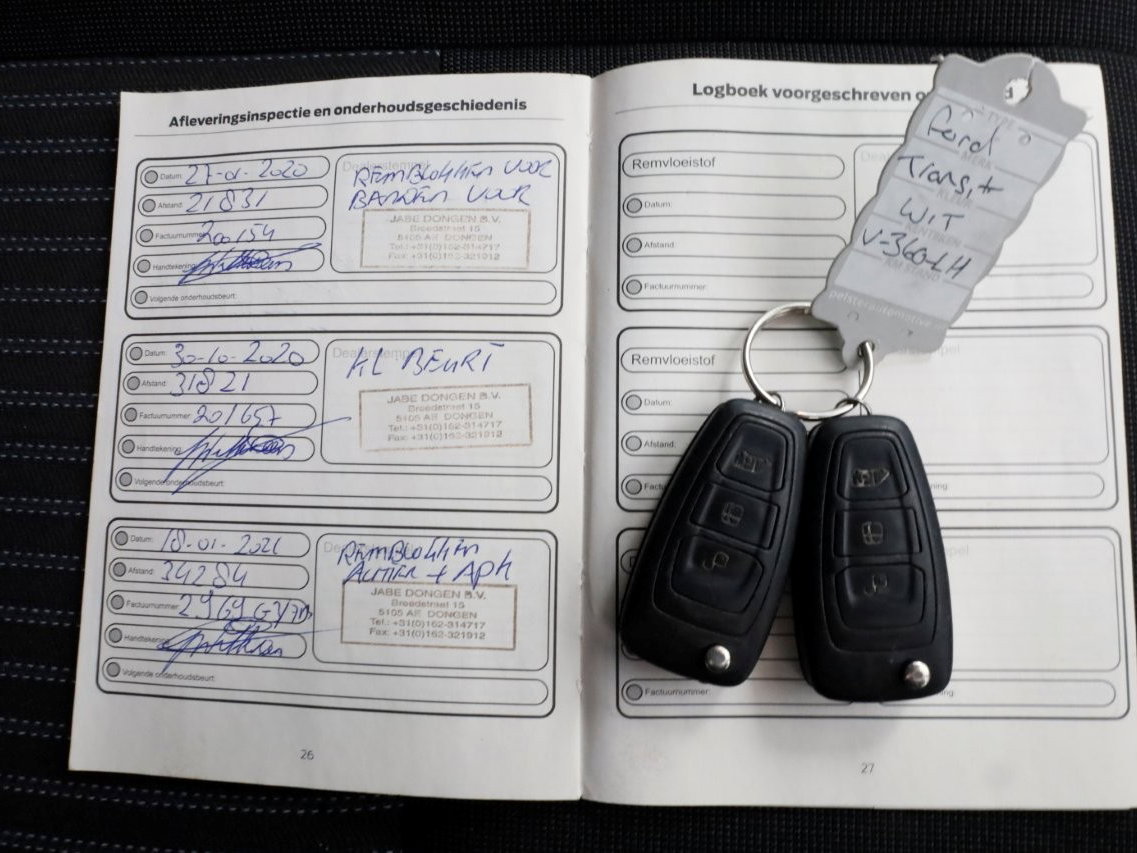 Afleveringsinspectie en onderhoudsgeschiedenis
Datum: 27-01-2020
Afstand: 21831
Factuurnummer: 200154
Handtekening:
Volgende onderhoudsbeurt:
Dealerstempel
REMBLOKKEN VOOR
BANDEN VOOR
JABE DONGEN B.V.
Broedstraat 15
5105 AE DONGEN
Tel.: +31(0)162-314717
Fax: +31(0)162-321912
Datum: 30-10-2020
Afstand: 31821
Factuurnummer: 201657
Handtekening:
Volgende onderhoudsbeurt:
Dealerstempel
KL BEURT
JABE DONGEN B.V.
Broedstraat 15
5105 AE DONGEN
Tel.: +31(0)162-314717
Fax: +31(0)162-321912
Datum: 18-01-2021
Afstand: 34284
Factuurnummer:
Handtekening:
Volgende onderhoudsbeurt:
Dealerstempel
REMBLOKKEN
ACHTER + APK
JABE DONGEN B.V.
Broedstraat 15
5105 AE DONGEN
Tel.: +31(0)162-314717
Fax: +31(0)162-321912
26
Logboek voorgeschreven
Remvloeistof
Datum:
Afstand:
Factuurnummer:
Remvloeistof
Datum:
Afstand:
Factuurnummer:
27
Ford
MERK
Transit
KLEUR
WIT
KENTEKEN
V-360-LH
KM STAND
pelsterautomotive